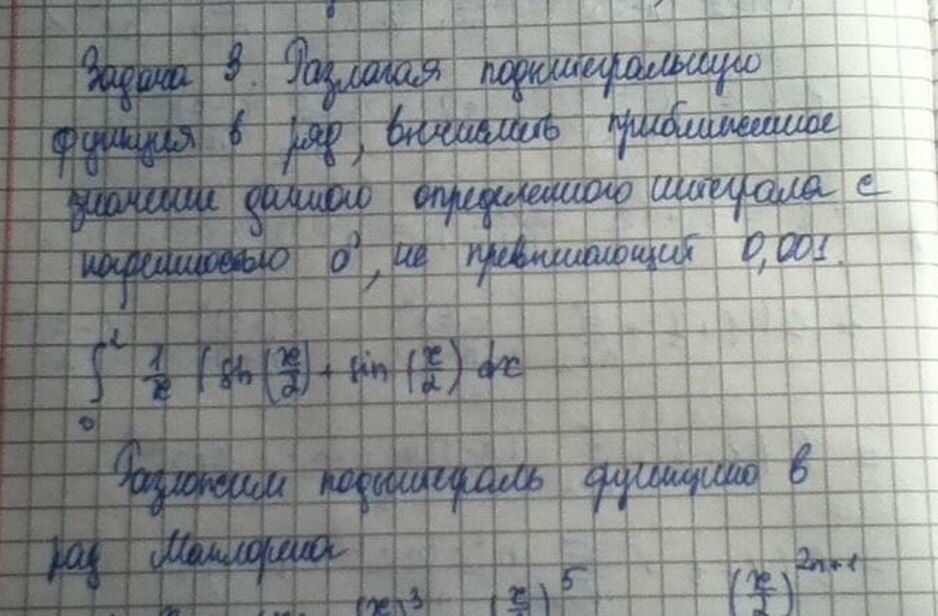 Задача 3. Разлагая подынтегральную
функция в ряд, вычислить приближенное
значение данного определенного интеграла с
погрешностью δ, не превышающий 0,001.
∫₀² 1/x (sh(x/2) + sin(x/2) dx
Разложим подынтеграль функцию в
ряд Маклорена
(x)³ (x/2)⁵ (x/2)²ⁿ⁺¹